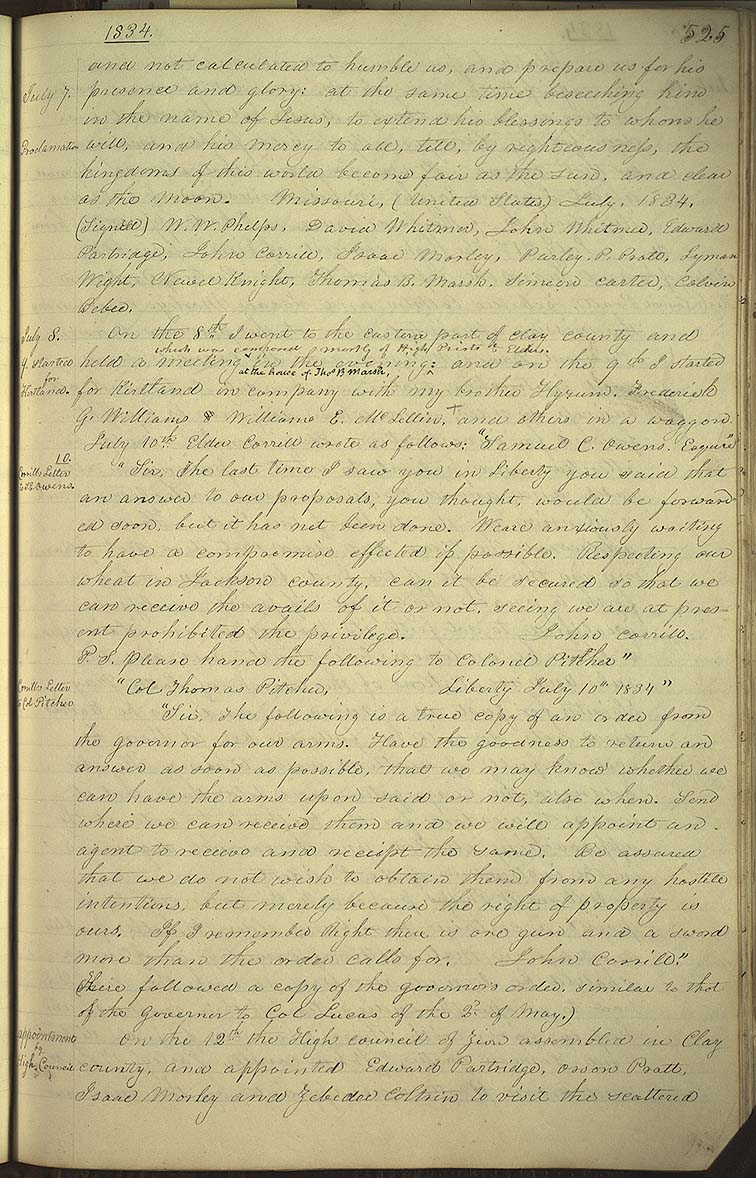 1834. 525
and not calculated to humble us, and prepare us for his
July 7. presence and glory: at the same time beseeching him
in the name of Jesus, to extend his blessings to whom he
Proclamation will, and his mercy to all, till, by righteousness, the
kingdoms of this world become fair as the Sun, and clear
as the Moon. Missouri, (United States,) July, 1834.
(Signed) W. W. Phelps, David Whitmer, John Whitmer, Edward
Partridge, John Corrill, Isaac Morley, Parley P. Pratt, Lyman
Wight, Newel Knight, Thomas B. Marsh, Simeon Carter, Calvin
Bebee.
July 8. On the 8th I went to the eastern part of Clay county and
which was composed mostly of High Priests & Elders.
9. started held a meeting in the evening; and on the 9th I started
at the house of Thos B Marsh,
for Kirtland. for Kirtland in company with my brother Hyrum, Frederick
G. Williams & William E. McLellin, and others in a waggon.
July 10th Elder Corrill wrote as follows: "Samuel C. Owens, Esquire"
10.
Corrills Letter to S. C. Owens. "Sir, The last time I saw you in Liberty you said that
an answer to our proposals, you thought, would be forward-
ed soon, but it has not been done. We are anxiously waiting
to have a compromise effected if possible. Respecting our
wheat in Jackson county, can it be secured so that we
can receive the avails of it or not, seeing we are at pres-
ent prohibited the privilege. John Corrill.
P. S. Please hand the following to Colonel Pitcher"
Corrills Letter to Col Pitcher "Col. Thomas Pitcher, Liberty July 10th 1834"
"Sir, The following is a true copy of an order from
the governor for our arms. Have the goodness to return an
answer as soon as possible, that we may know whether we
can have the arms upon said or not, also when. Send
where we can receive them and we will appoint an
agent to receive and receipt the same. Be assured
that we do not wish to obtain them from any hostile
intentions, but merely because the right of property is
ours. If I remember Right there is one gun and a sword
more than the order calls for. John Corrill."
Here followed a copy of the governors order, similar to that
of the Governor to Col Lucas of the 2d of May.)
appointment by High Council On the 12th the High council of Zion assembled in Clay
county, and appointed Edward Partridge, Orson Pratt,
Isaac Morley and Zebedee Coltrin to visit the scattered